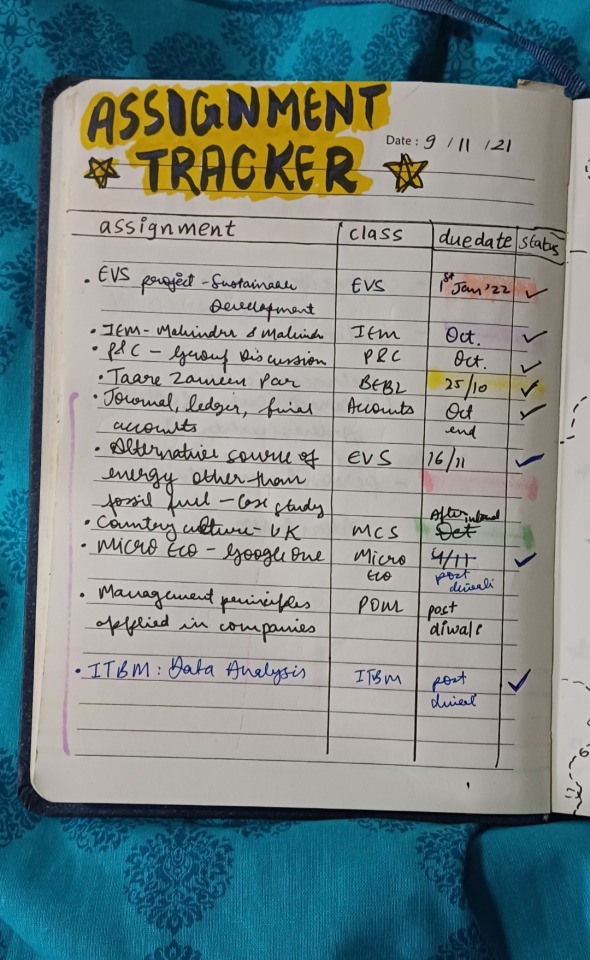 ASSIGNMENT
Date : 9 / 11 / 21
TRACKER
assignment class due date status
• EVS project - Sustainable EVS 1st Jan '22 ✓
Development
• IEM - Mahindra & Mahindra IEM Oct. ✓
• P&C - Group Discussion P&C Oct. ✓
• Taare Zameen Par BEBL 25/10 ✓
• Journal, ledger, final Accounts Oct ✓
accounts end
• Alternative source of EVS 16/11 ✓
energy other than
fossil fuel - case study
After
• Country culture - UK MCS Oct
• Micro Eco - Google One Micro 4/11 ✓
Eco post
diwali
• Management principles POM post
applied in companies diwali
• ITBM : Data Analysis ITBM post ✓
diwali